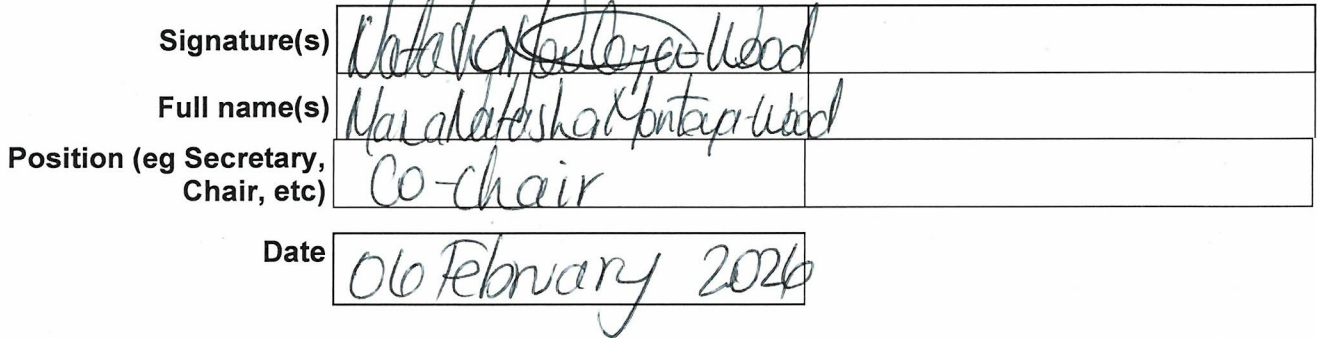 Signature(s) Natasha Montoya-Wood
Full name(s) Maria Natasha Montoya-Wood
Position (eg Secretary,
Chair, etc) Co-chair
Date 06 February 2026